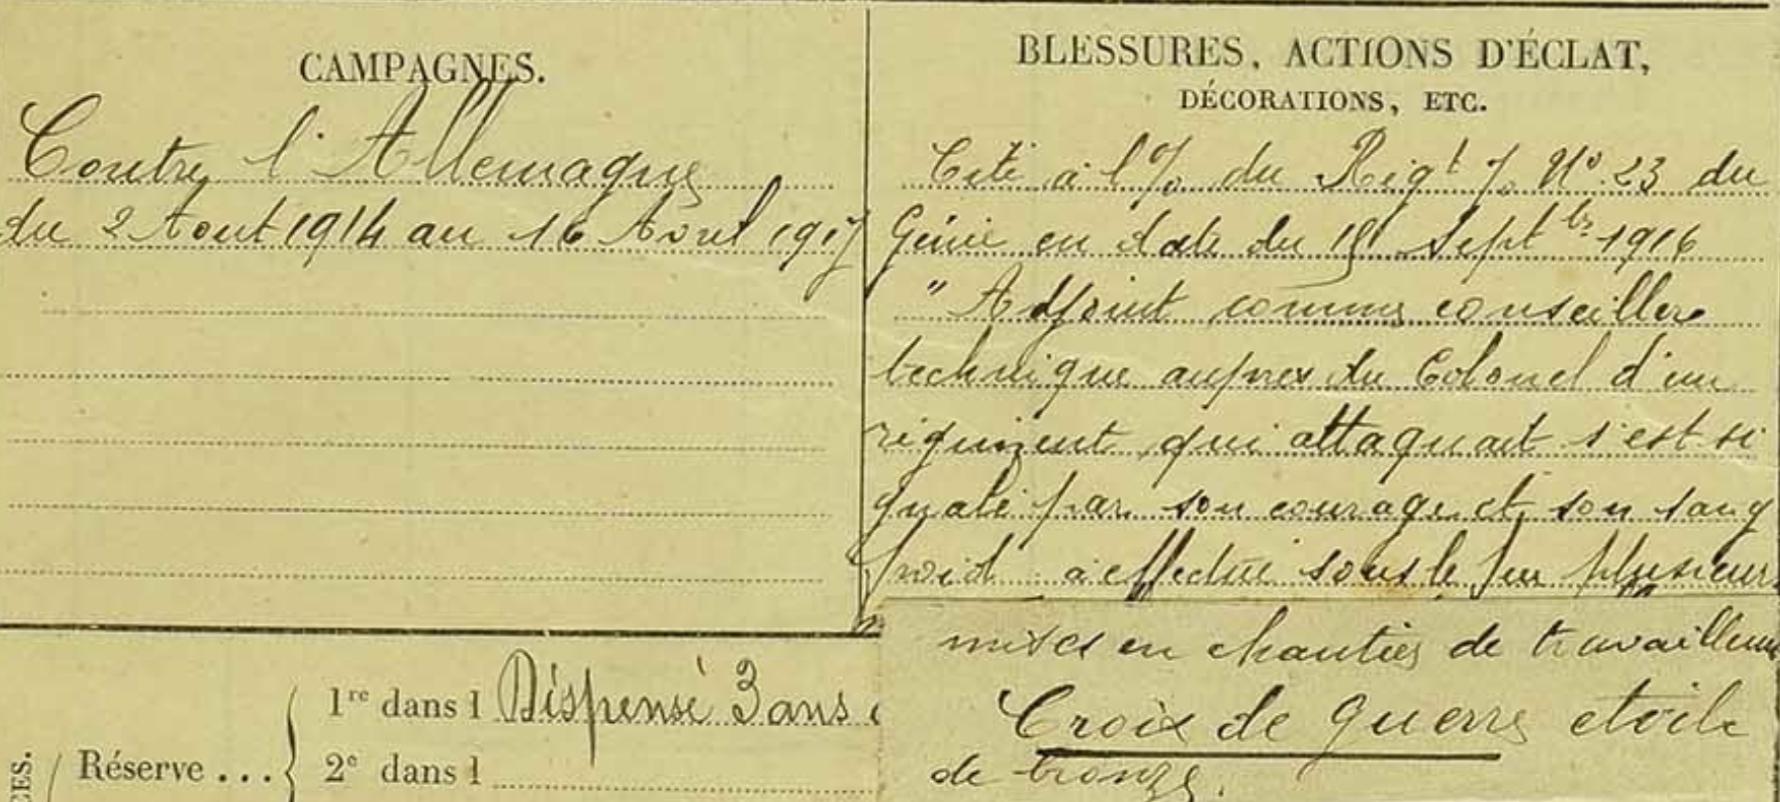 CAMPAGNES.
Contre l'Allemagne
du 2 Aout 1914 au 16 Avril 1917
BLESSURES, ACTIONS D'ÉCLAT,
DÉCORATIONS, ETC.
Cité à l'% du Rigt % No 23 du
Génie en date du Septbre 1916
" Adjoint comme conseiller
technique aupres du Colonel d'un
régiment qui attaquait s'est si
gnalé par son courage et son sang
froid a effectué sous le feu plusieurs
mises en chantier de travailleurs
Croix de guerre etoile
de bronze.
CES.
Réserve ...
1re dans l Dispensé 3 ans
2e dans l